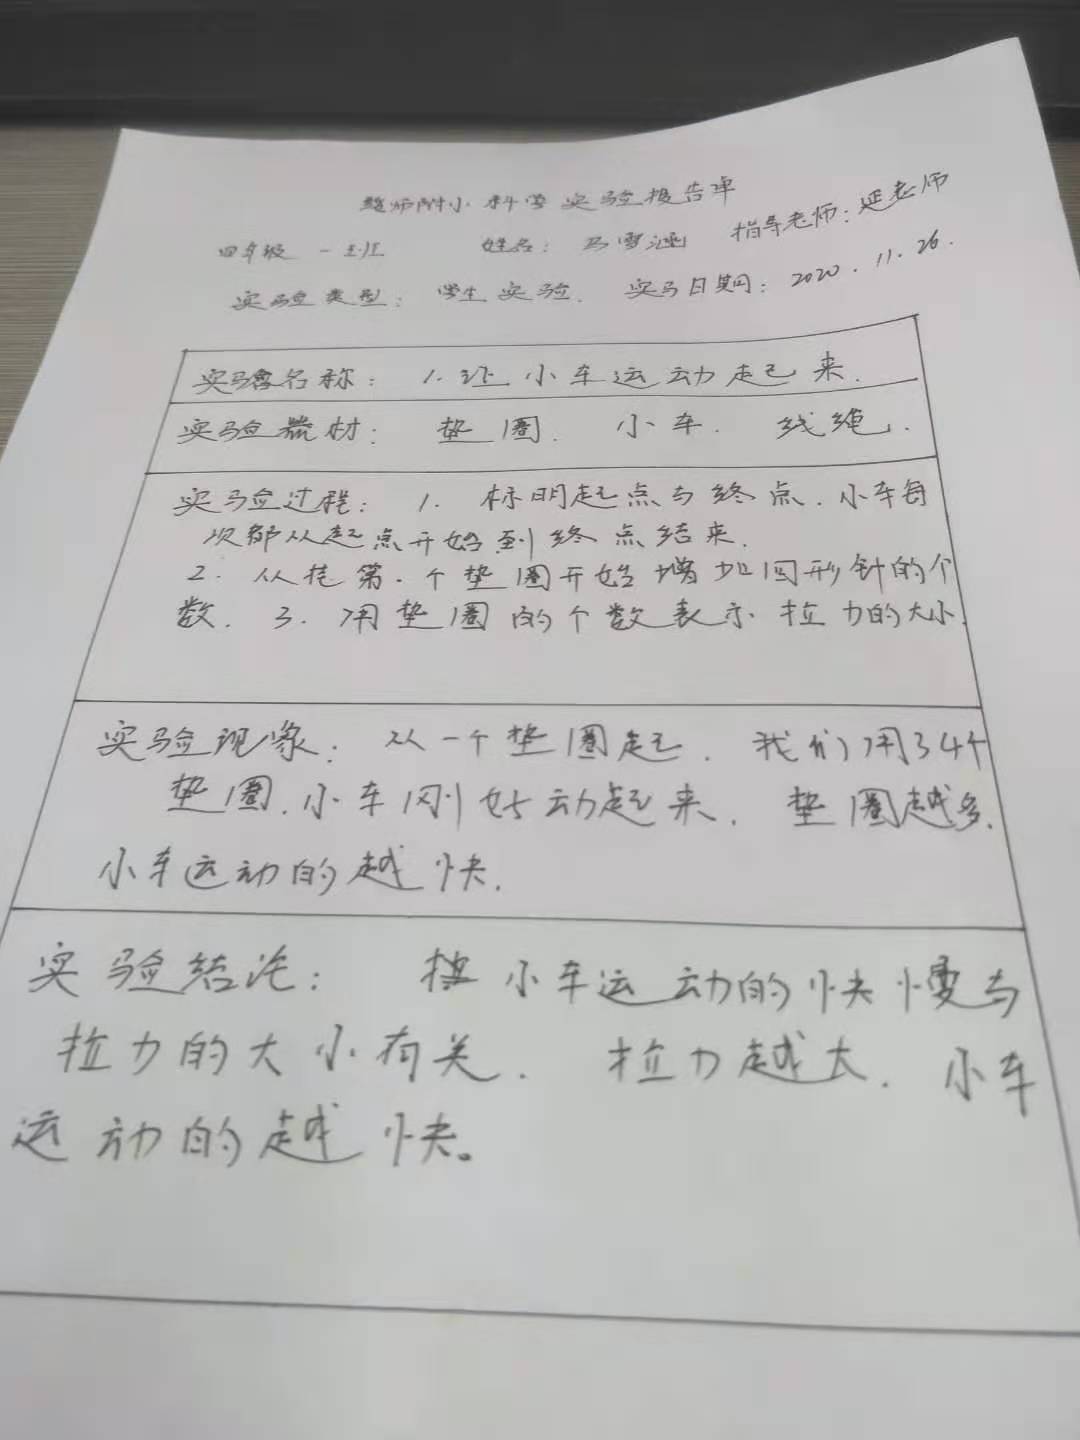 师附小科学实验报告单
四年级 一班 姓名: 马雪涵 指导老师: 延老师
实验类型: 学生实验. 实马日期: 2020.11.26.
实验名称: 1.让小车运动起来.
实验器材: 垫圈. 小车. 线绳.
实验过程: 1. 标明起点与终点.小车每
次都从起点开始到终点结束.
2. 从挂第一个垫圈开始增加回形针的个
数. 3. 用垫圈的个数表示拉力的大小.
实验现象: 从一个垫圈起. 我们用34个
垫圈.小车刚好动起来. 垫圈越多.
小车运动的越快.
实验结论: 小车运动的快慢与
拉力的大小有关. 拉力越大. 小车
运动的越快。